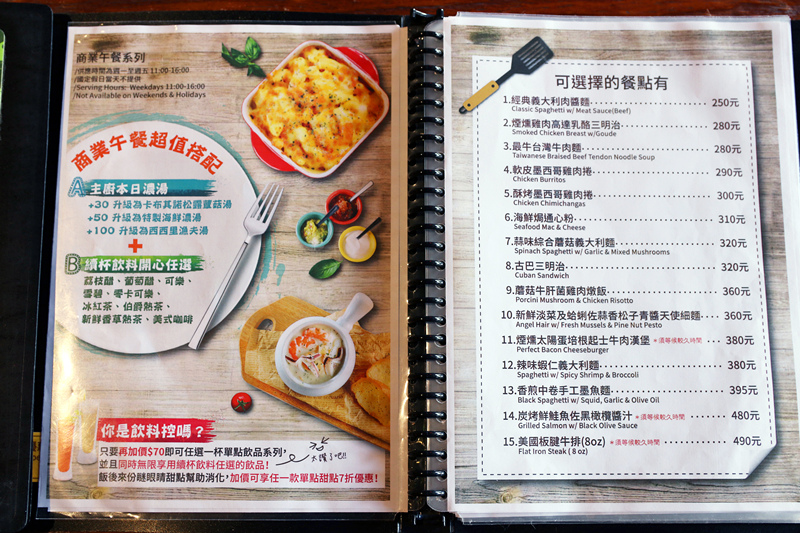 商業午餐系列
/供應時間為週一至週五 11:00-16:00
/國定假日當天不提供
/Serving Hours: Weekdays 11:00-16:00
/Not Available on Weekends & Holidays
商業午餐超值搭配
A 主廚本日濃湯
+30 升級為卡布其諾松露蘑菇湯
+50 升級為特製海鮮濃湯
+100 升級為西西里漁夫湯
+
B 續杯飲料開心任選
荔枝醋、葡萄醋、可樂、
雪碧、零卡可樂、
冰紅茶、伯爵熱茶、
新鮮香草熱茶、美式咖啡
你是飲料控嗎？
只要再加價$70即可任選一杯單點飲品系列，
並且同時無限享用續杯飲料任選的飲品！
太讚了吧!!
飯後來份瞇眼睛甜點幫助消化，加價可享任一款單點甜點7折優惠！
可選擇的餐點有
1.經典義大利肉醬麵 250元
Classic Spaghetti w/ Meat Sauce(Beef)
2.煙燻雞肉高達乳酪三明治 280元
Smoked Chicken Breast w/Goude
3.最牛台灣牛肉麵 280元
Taiwanese Braised Beef Tendon Noodle Soup
4.軟皮墨西哥雞肉捲 290元
Chicken Burritos
5.酥烤墨西哥雞肉捲 300元
Chicken Chimichangas
6.海鮮焗通心粉 310元
Seafood Mac & Cheese
7.蒜味綜合蘑菇義大利麵 320元
Spinach Spaghetti w/ Garlic & Mixed Mushrooms
8.古巴三明治 320元
Cuban Sandwich
9.蘑菇牛肝菌雞肉燉飯 360元
Porcini Mushroom & Chicken Risotto
10.新鮮淡菜及蛤蜊佐蒜香松子青醬天使細麵 360元
Angel Hair w/ Fresh Mussels & Pine Nut Pesto
11.煙燻太陽蛋培根起士牛肉漢堡 *須等候較久時間 380元
Perfect Bacon Cheeseburger
12.辣味蝦仁義大利麵 380元
Spaghetti w/ Spicy Shrimp & Broccoli
13.香煎中卷手工墨魚麵 395元
Black Spaghetti w/ Squid, Garlic & Olive Oil
14.炭烤鮮鮭魚佐黑橄欖醬汁 *須等候較久時間 480元
Grilled Salmon w/ Black Olive Sauce
15.美國板腱牛排(8oz) *須等候較久時間 490元
Flat Iron Steak ( 8 oz)